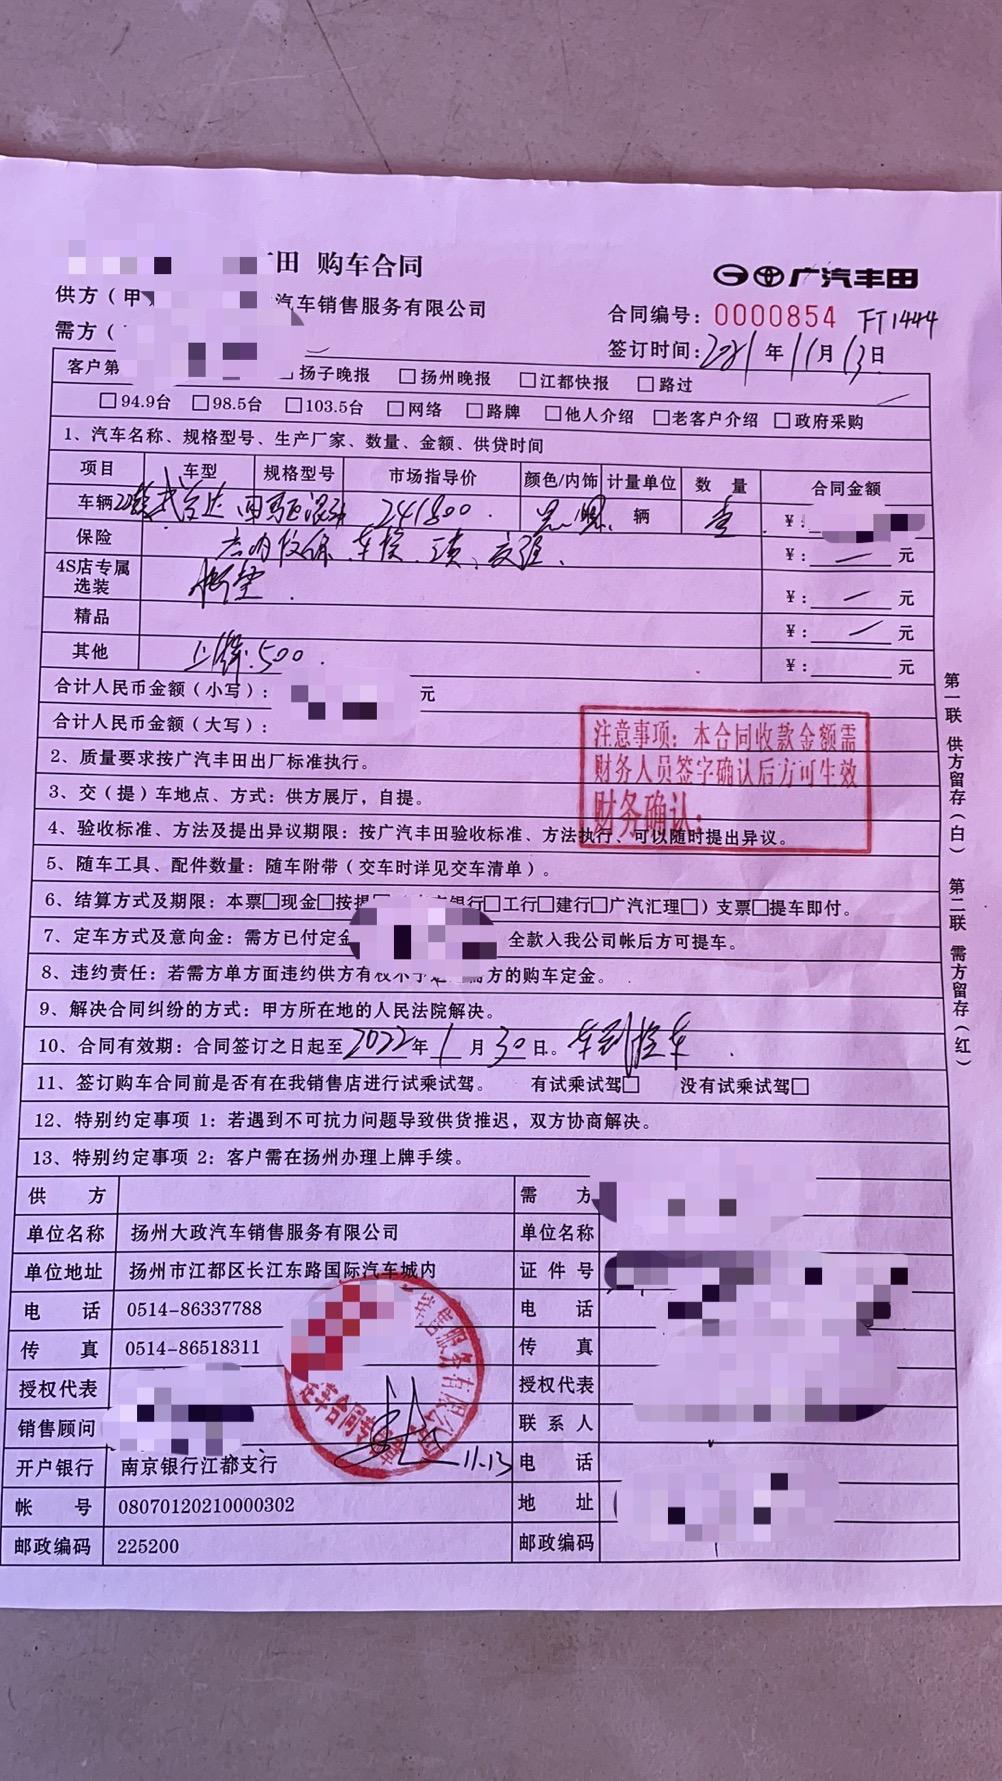 田 购车合同
广汽丰田
供方（甲
汽车销售服务有限公司
合同编号：0000854 FT1444
需方（
签订时间：2021年11月13日
客户第
扬子晚报 □扬州晚报 □江都快报 □路过
□94.9台 □98.5台 □103.5台 □网络 □路牌 □他人介绍 □老客户介绍 □政府采购
1、汽车名称、规格型号、生产厂家、数量、金额、供贷时间
项目 车型 规格型号 市场指导价 颜色/内饰 计量单位 数 量 合同金额
车辆 241800. 辆 壹 ¥：
保险 店内投保 车损、三责、交强、 ¥： 元
4S店专属选装 ¥： 元
精品 ¥： 元
其他 上牌:500. ¥： 元
合计人民币金额（小写）： 元
合计人民币金额（大写）：
注意事项：本合同收款金额需
财务人员签字确认后方可生效
财务确认：
2、质量要求按广汽丰田出厂标准执行。
3、交（提）车地点、方式：供方展厅，自提。
4、验收标准、方法及提出异议期限：按广汽丰田验收标准、方法执行、可以随时提出异议。
5、随车工具、配件数量：随车附带（交车时详见交车清单）。
6、结算方式及期限：本票□现金□按揭 银行□工行□建行□广汽汇理□）支票□提车即付。
7、定车方式及意向金：需方已付定金 全款入我公司帐后方可提车。
8、违约责任：若需方单方面违约供方有权不予 方的购车定金。
9、解决合同纠纷的方式：甲方所在地的人民法院解决。
10、合同有效期：合同签订之日起至2022年1月30日。车到提车.
11、签订购车合同前是否有在我销售店进行试乘试驾。 有试乘试驾□ 没有试乘试驾□
12、特别约定事项 1：若遇到不可抗力问题导致供货推迟，双方协商解决。
13、特别约定事项 2：客户需在扬州办理上牌手续。
供 方 需 方
单位名称 扬州大政汽车销售服务有限公司 单位名称
单位地址 扬州市江都区长江东路国际汽车城内 证 件 号
电 话 0514-86337788 电 话
传 真 0514-86518311 传 真
授权代表 授权代表
销售顾问 11.13 联 系 人
开户银行 南京银行江都支行 电 话
帐 号 08070120210000302 地 址
邮政编码 225200 邮政编码
销售服务有限公司
第一联 供方留存（白） 第二联 需方留存（红）